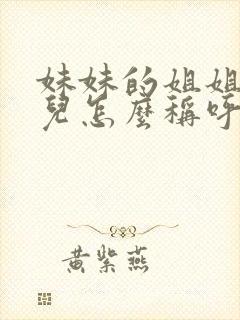 妹妹的姐姐
兒怎麼稱呼
黃紫燕